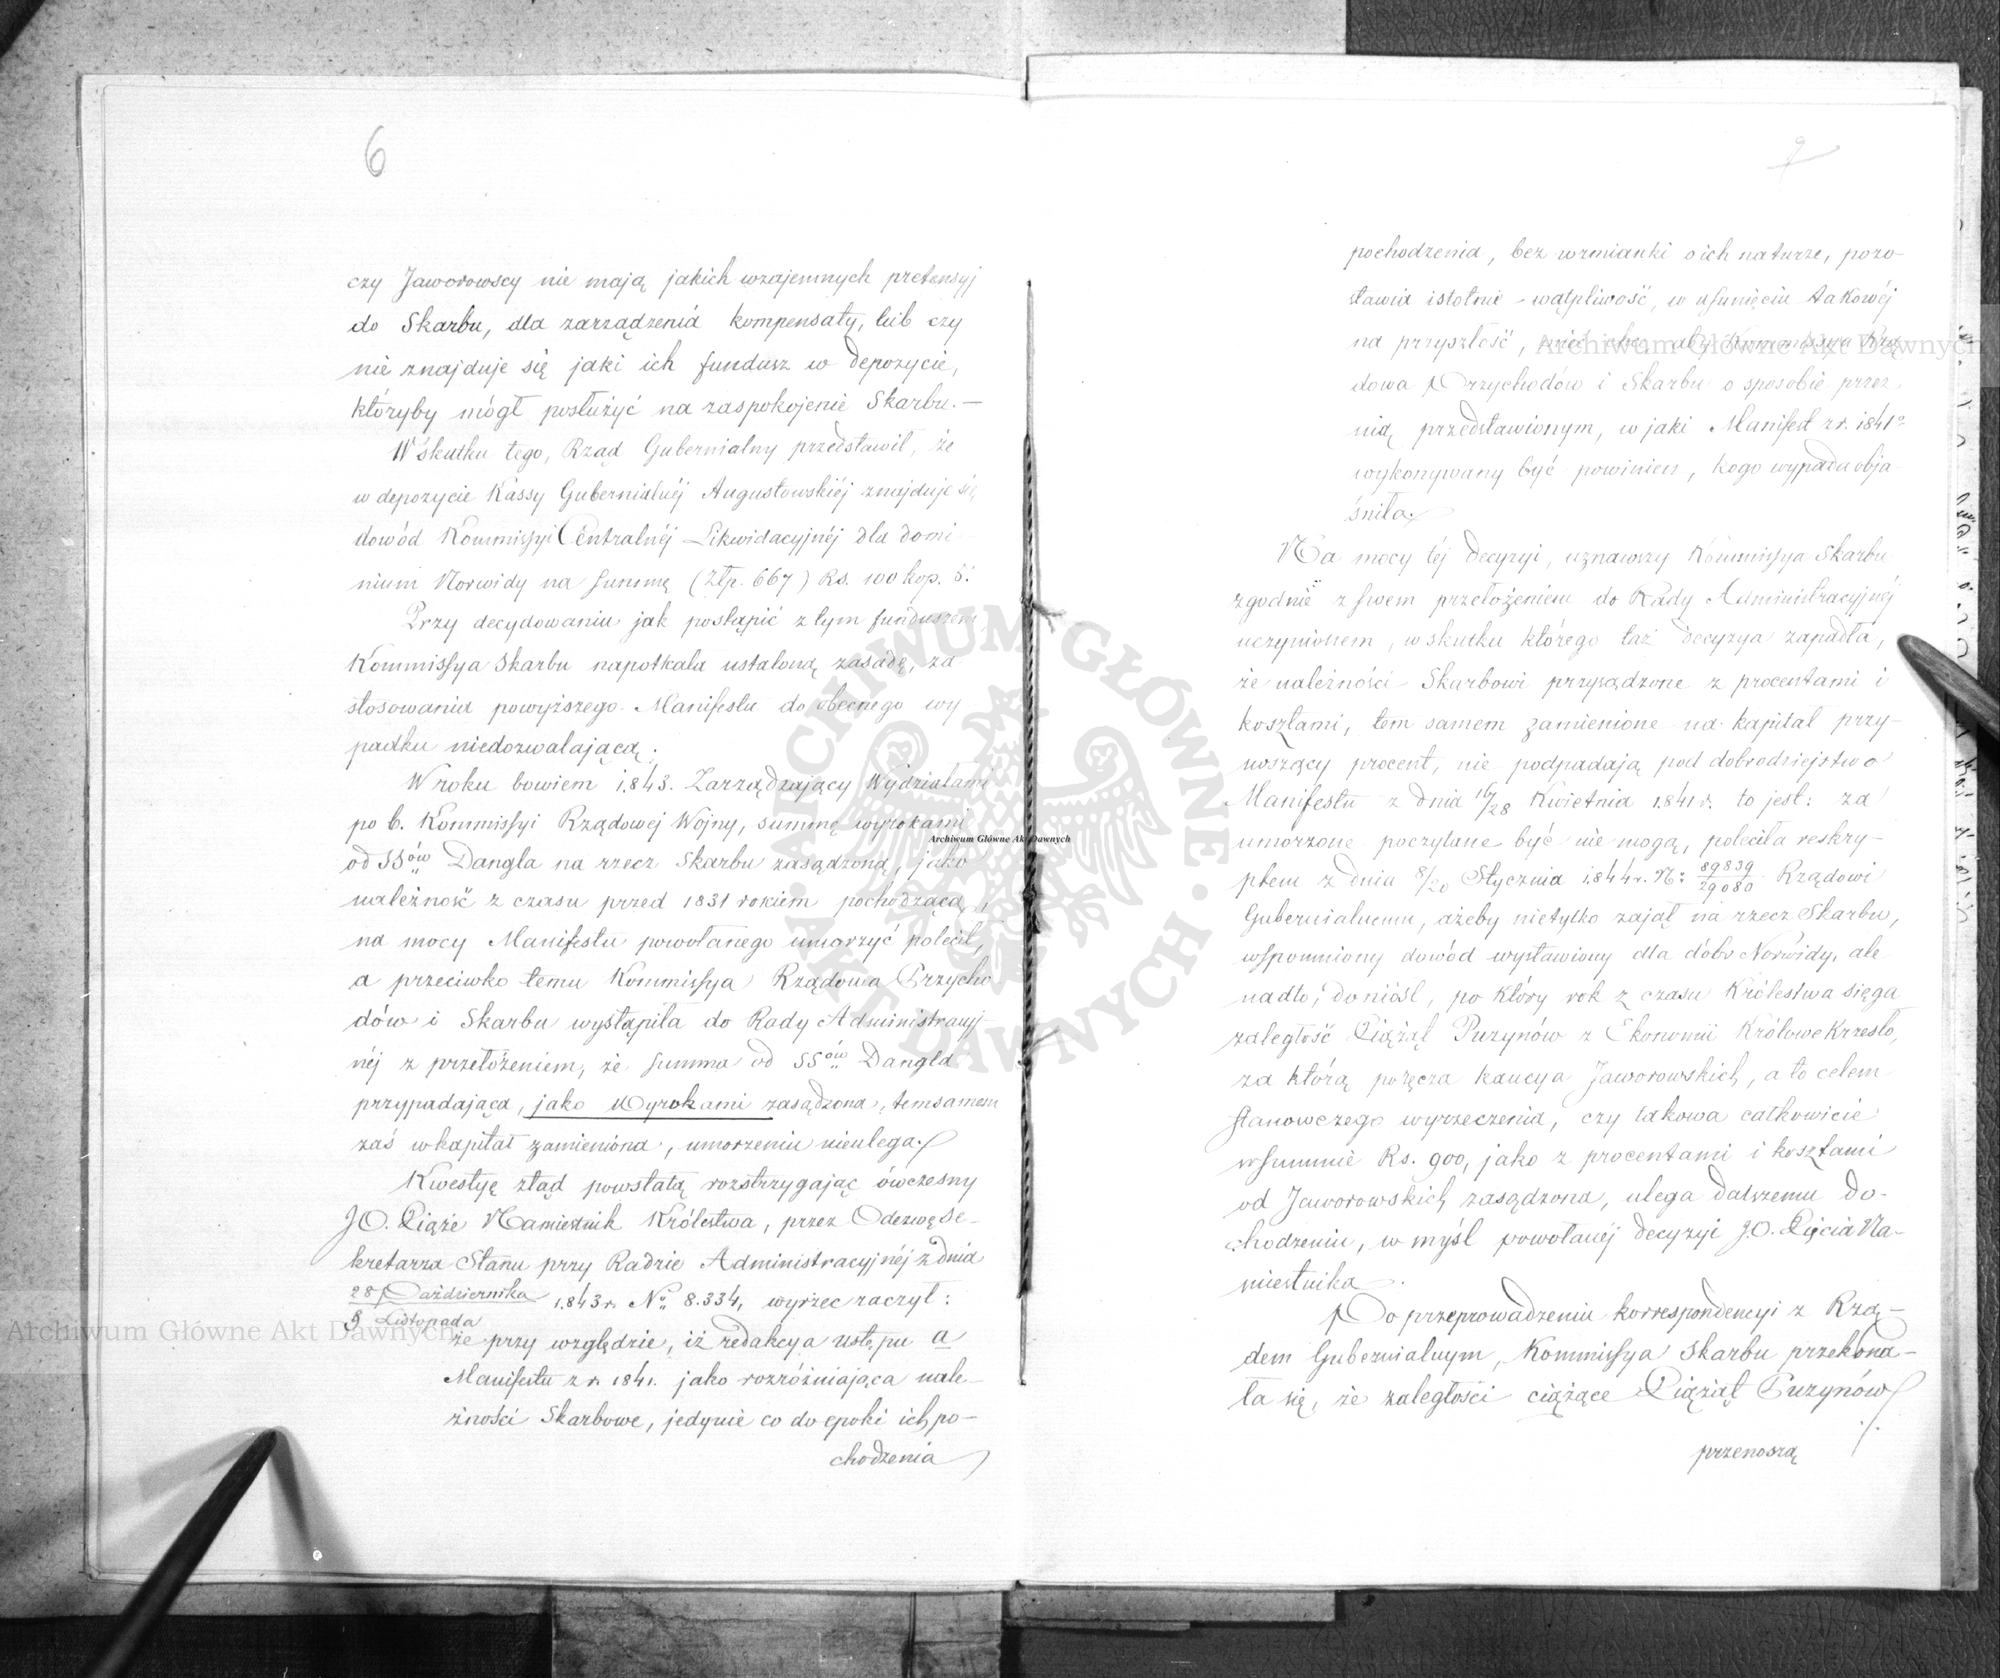 6
czy Jaworowscy nie mają jakich wzajemnych pretensyj
do Skarbu, dla zarządzenia kompensaty, lub czy
nie znajduje się jaki ich fundusz w depozycie,
któryby mógł posłużyć na zaspokojenie Skarbu. —
W skutku tego, Rząd Gubernialny przedstawił, że
w depozycie Kassy Gubernialnéj Augustowskiéj znajduje się
dowód Kommissyi Centralnéj Likwidacyjnéj dla domi-
nium Norwidy na summę (złp. 667) Rs. 100 kop. 5.
Przy decydowaniu jak postąpić z tym funduszem
Kommissya Skarbu napotkała ustaloną zasadę, za
stosowania powyższego Manifestu do obecnego wy
padku niedozwalającą.
W roku bowiem 1843. Zarządzający Wydziałami
po b. Kommissyi Rządowej Wojny, summę wyrokami
od SSów Dangla na rzecz Skarbu zasądzoną, jako
należność z czasu przed 1831 rokiem pochodzącą,
na mocy Manifestu powołanego umorzyć polecił,
a przeciwko temu Kommissya Rządowa Przycho
dów i Skarbu wystąpiła do Rady Administracyj
néj z przełożeniem, że summa od SSów Dangla
przypadająca, jako wyrokami zasądzona, temsamem
zaś w kapitał zamieniona, umorzeniu nieulega.
Kwestyę ztąd powstałą rozstrzygając ówczesny
JO. Xiąże Namiestnik Królestwa, przez Odezwę Se-
kretarza Stanu przy Radzie Administracyjnéj z dnia
28 Października / 9 Listopada 1843 r. No 8.334, wyrzec raczył:
że przy względzie, iż redakcya ustępu a
Manifestu z r. 1841. jako rozróżniająca nale-
żności Skarbowe, jedynie co do epoki ich po-
chodzenia
pochodzenia, bez wzmianki o ich naturze, pozo-
stawia istotnie wątpliwość, w usunięciu takowéj
na przyszłość, mieć chce, aby Kommissya Rzą
dowa Przychodów i Skarbu o sposobie przez
nią przedstawionym, w jaki Manifest z r. 1841o
wykonywany być powinien, kogo wypada obja-
śniła.
Na mocy téj decyzyi, uznawszy Kommissya Skarbu
zgodnie z swem przełożeniem do Rady Administracyjnéj
uczynionem, w skutku którego taż decyzya zapadła,
że należności Skarbowi przysądzone z procentami i
kosztami, tem samem zamienione na kapitał przy-
noszący procent, nie podpadają pod dobrodziejstwo
Manifestu z dnia 16/28 Kwietnia 1841 r. to jest: za
umorzone poczytane być nie mogą, poleciła reskry-
ptem z dnia 8/20 Stycznia 1844 r. N: 89839/29080 Rządowi
Gubernialnemu, ażeby nietylko zajął na rzecz Skarbu,
wspomniony dowód wystawiony dla dóbr Norwidy, ale
nadto, doniósł, po który rok z czasu Królestwa sięga
zaległość Xiążąt Puzynów z Ekonomii Królowe Krzesło,
za którą poręcza kaucya Jaworowskich, a to celem
stanowczego wyrzeczenia, czy takowa całkowicie
w summie Rs. 900, jako z procentami i kosztami
od Jaworowskich zasądzona, ulega dalszemu do-
chodzeniu, w myśl powołanéj decyzyi JO. Xięcia Na-
miestnika.
Po przeprowadzeniu korrespondencyi z Rzą-
dem Gubernialnym, Kommissya Skarbu przekona-
ła się, że zaległości ciążące Xiążąt Puzynów
przenoszą
Archiwum Główne Akt Dawnych
Archiwum Główne Akt Dawnych
Archiwum Główne Akt Dawnych
ARCHIWUM GŁÓWNE AKT DAWNYCH